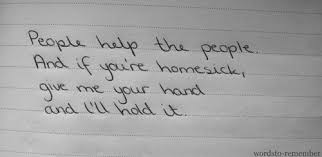 People help the people.
And if you're homesick,
give me your hand
and I'll hold it.
wordsto-remember